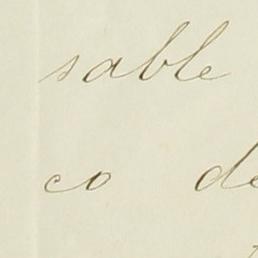 sable
co de